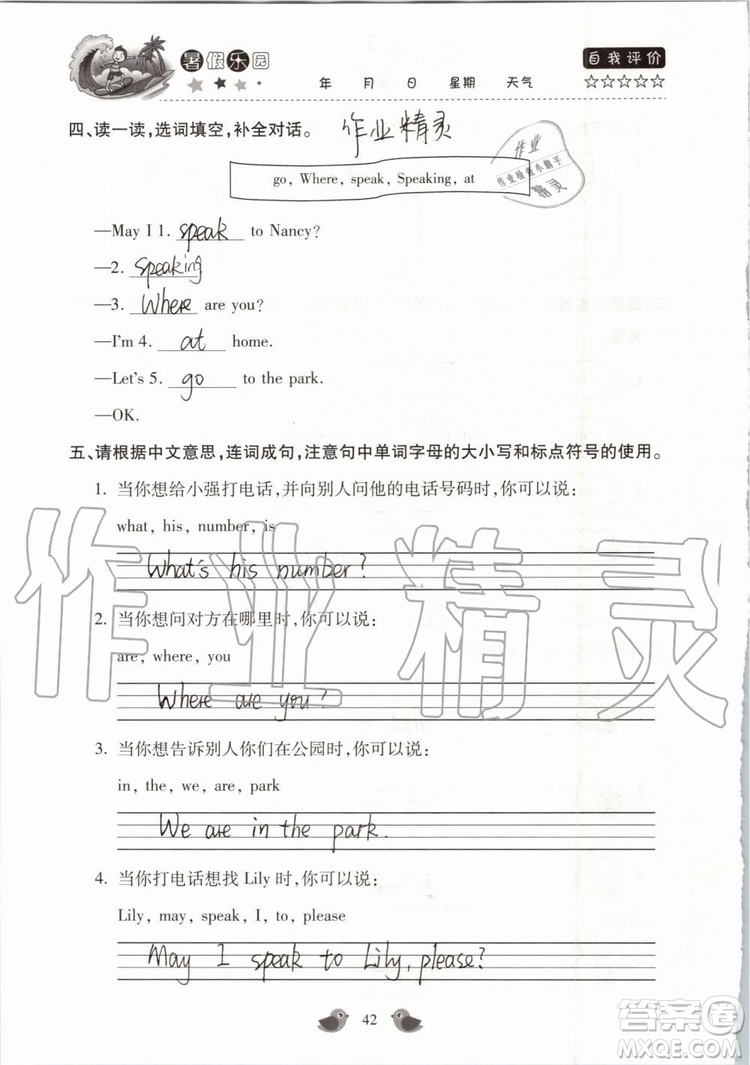 暑假乐园
年 月 日 星期 天气
自我评价
☆☆☆☆☆
四、读一读,选词填空,补全对话。 作业精灵
go, Where, speak, Speaking, at
作业
作业检查小助手
精灵
—May I 1. speak to Nancy?
—2. Speaking
—3. Where are you?
—I'm 4. at home.
—Let's 5. go to the park.
—OK.
五、请根据中文意思,连词成句,注意句中单词字母的大小写和标点符号的使用。
1. 当你想给小强打电话,并向别人问他的电话号码时,你可以说:
what, his, number, is
What's his number?
2. 当你想问对方在哪里时,你可以说:
are, where, you
Where are you?
3. 当你想告诉别人你们在公园时,你可以说:
in, the, we, are, park
We are in the park.
4. 当你打电话想找 Lily 时,你可以说:
Lily, may, speak, I, to, please
May I speak to Lily, please?
42
作业精灵
答案圈
MXQE.COM